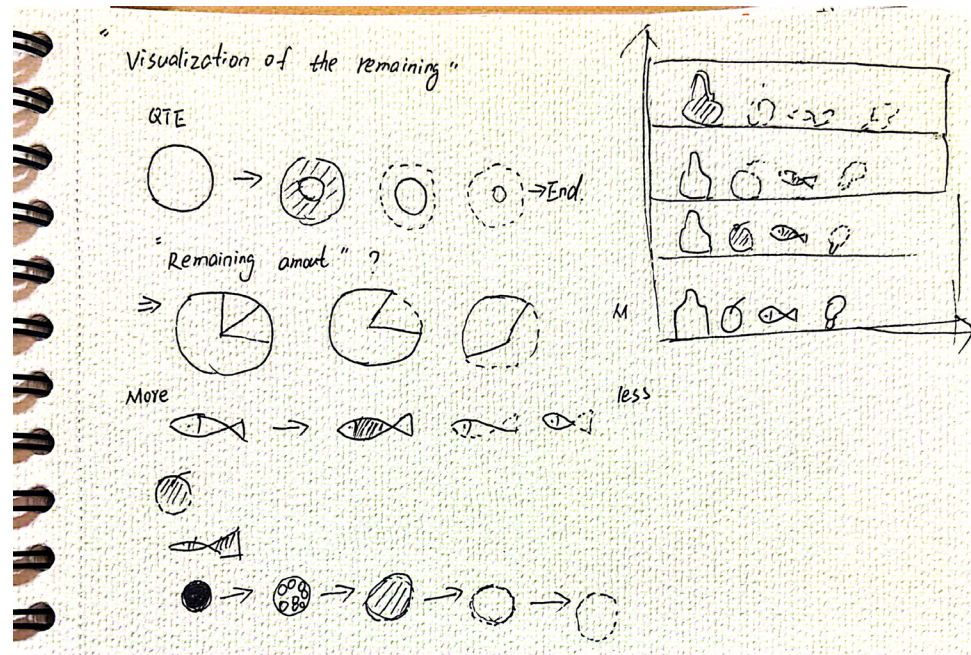 "Visualization of the remaining"
QTE
End.
"Remaining amout" ?
M
More
less